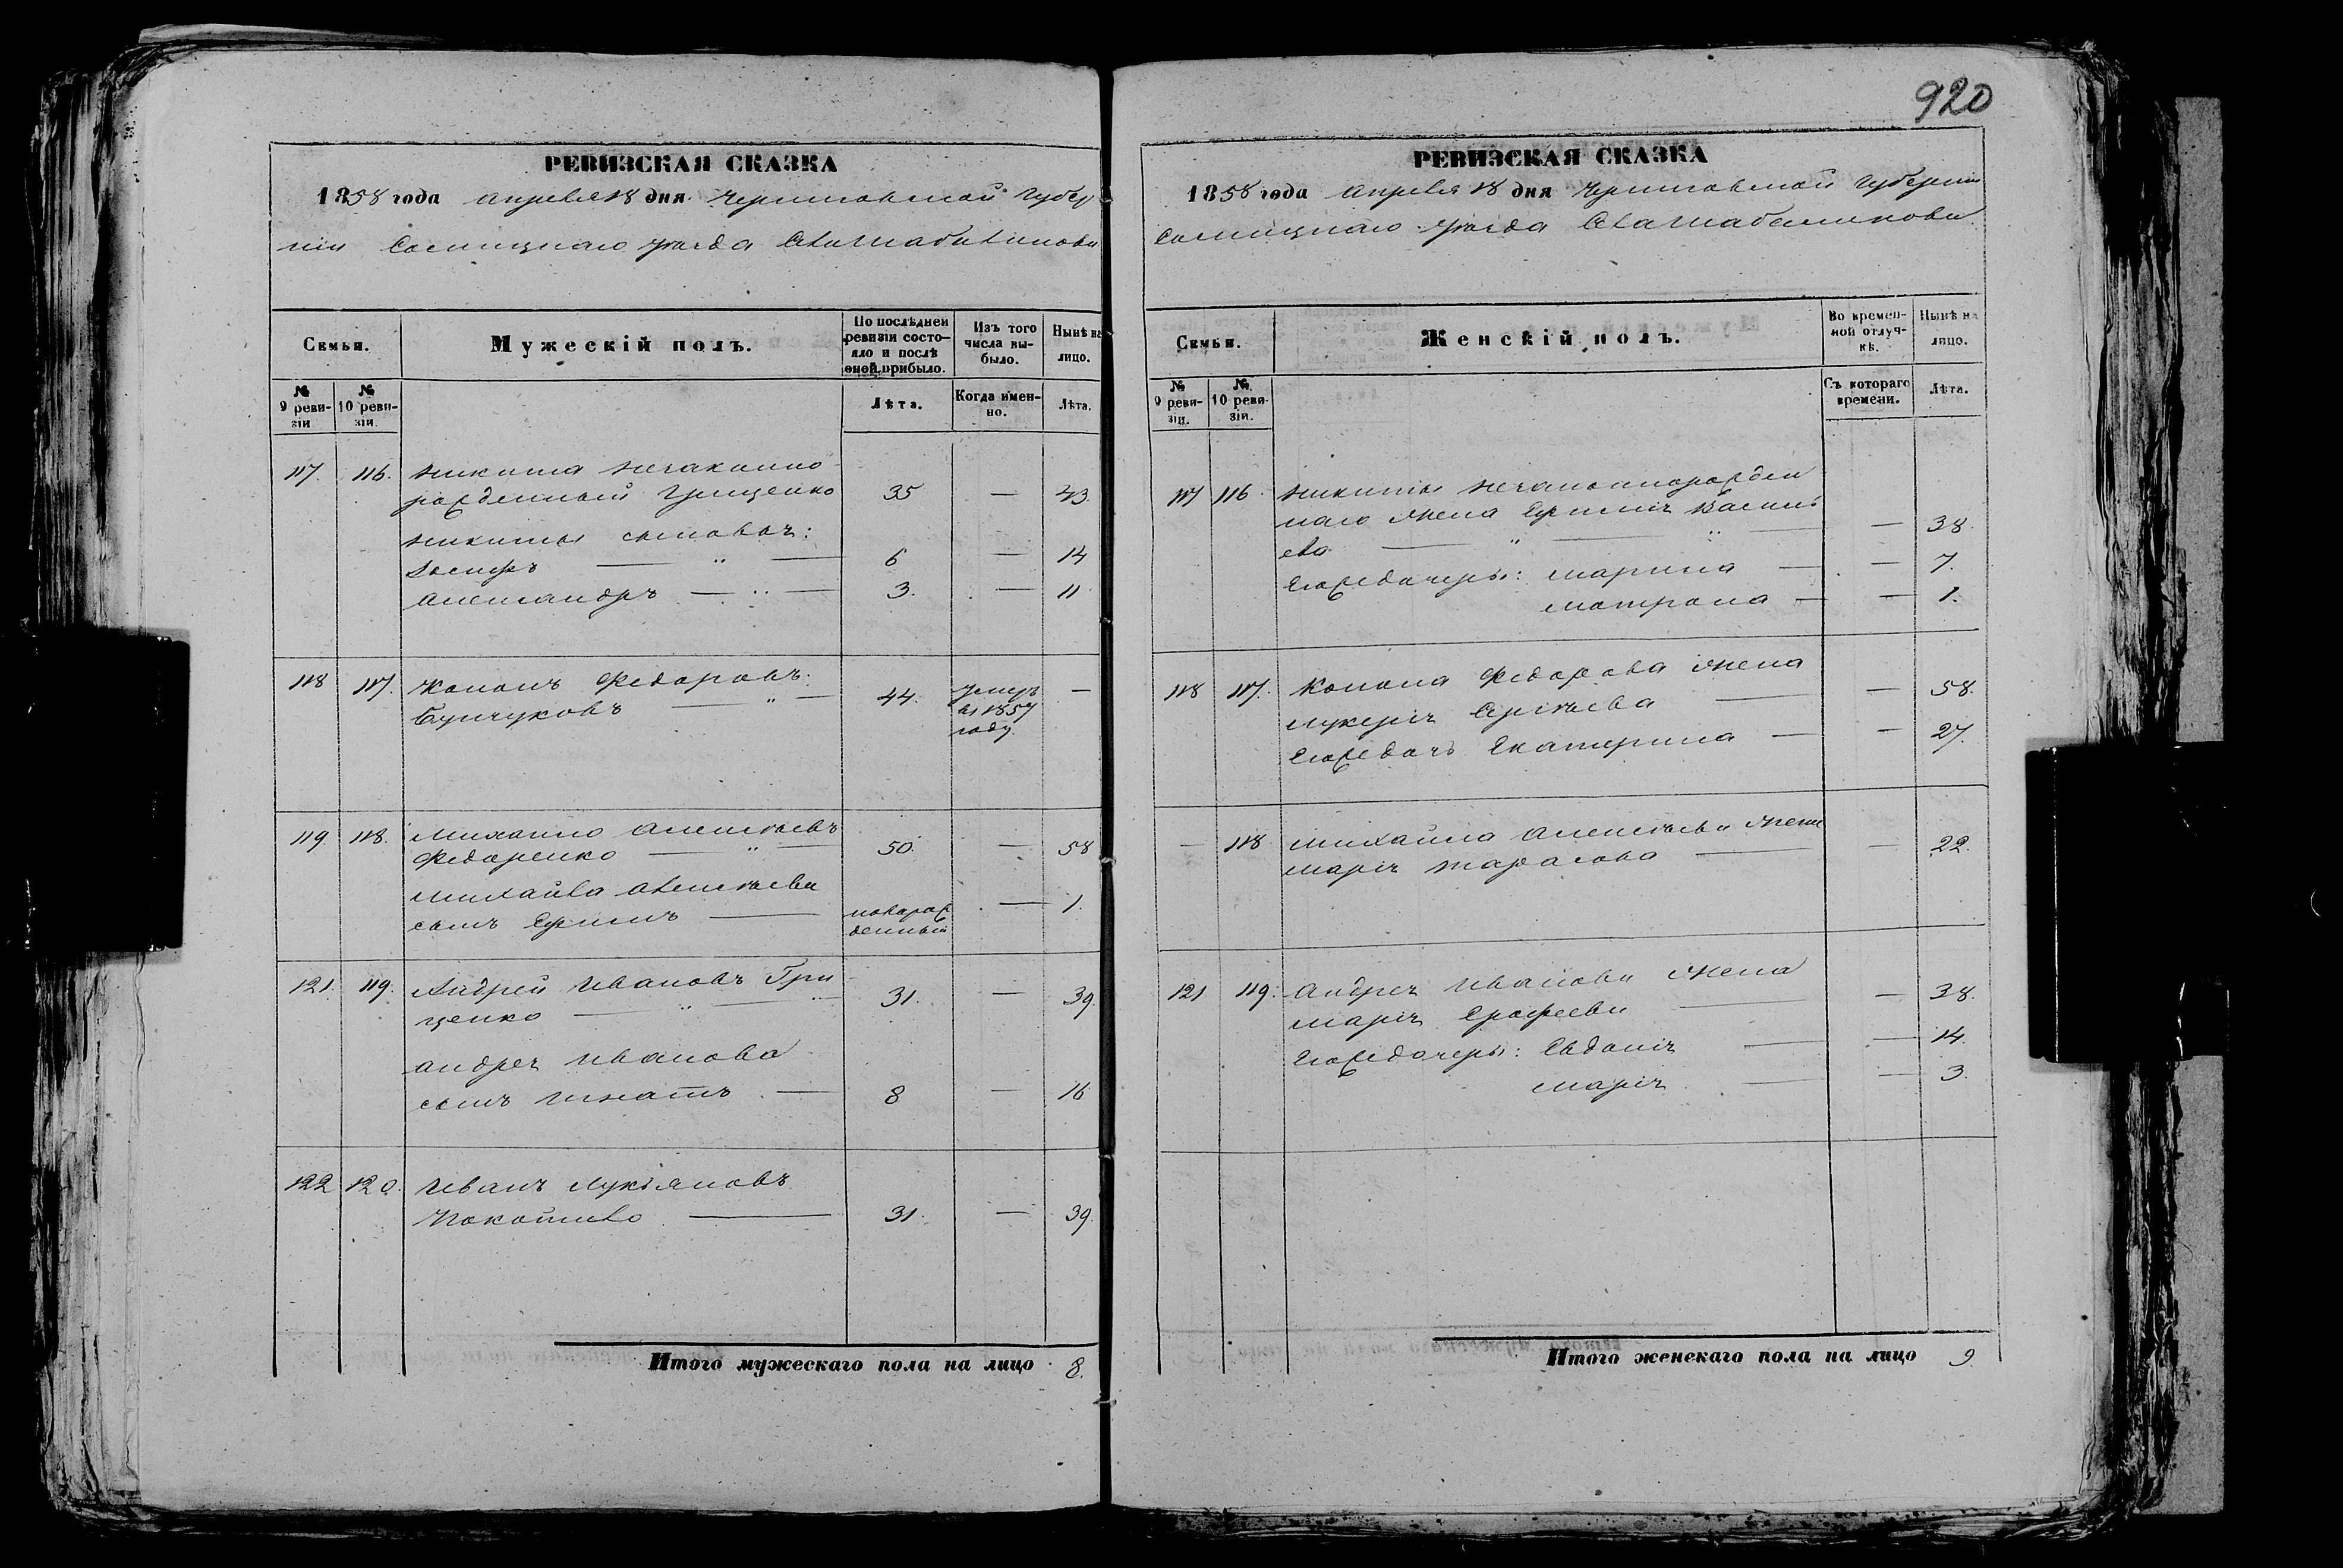 920
РЕВИЗСКАЯ СКАЗКА
1858 года апреля 18 дня Черниговской Губер
ніи Сосницкаго уезда
Семьи.
Мужескій полъ.
По послѣдней ревизіи состо-
яло и послѣ
оной прибыло.
Изъ того
числа вы-
было.
Нынѣ на
лицо.
№
9 реви-
зіи
№
10 реви-
зіи.
Лѣта.
Когда имен-
но.
Лѣта.
117. 116. Никита незаконно
рожденный Грищенко 35 — 43.
Никиты сыновья:
Іосифъ — " — 6 — 14
Александръ — " — 3. — 11
118 117. Кононъ Федоровъ
Бунчуковъ — " — 44. умеръ
въ 1857
году —
119. 118. Михайло Алексѣевъ
Федоренко — " — 50. — 58
Михайла Алексѣева
сынъ Ефимъ — новорож
денный — 1.
121. 119. Андрей Ивановъ Гри
щенко — " — 31. — 39.
Андрея Иванова
сынъ Игнатъ — 8 — 16
122 120. Иванъ Лукіяновъ
Покотило — 31. — 39.
Итого мужескаго пола на лицо 8.
РЕВИЗСКАЯ СКАЗКА
1858 года апреля 18 дня Черниговской Губерніи
Сосницкаго уезда
Семьи.
Женскій полъ.
Во времен-
ной отлуч-
кѣ.
Нынѣ на
лицо.
№
9 реви-
зіи.
№
10 реви-
зіи.
Съ котораго
времени.
Лѣта.
117 116. Никиты незаконнорожден
наго жена Ефимія Василь
ева — " — " — 38.
Его же дочери: Марина — — 7.
Матрона — — 1.
118 117. Конона Федорова жена
Лукерія Сергѣева — — 58.
Его же дочь Екатерина — — 27.
— 118 Михайла Алексѣева жена
Марія Тарасова — — 22.
121 119. Андрея Иванова жена
Марія Ерофеева — — 38.
Его же дочери: Евдокія — — 14.
Марія — — 3.
Итого женскаго пола на лицо 9